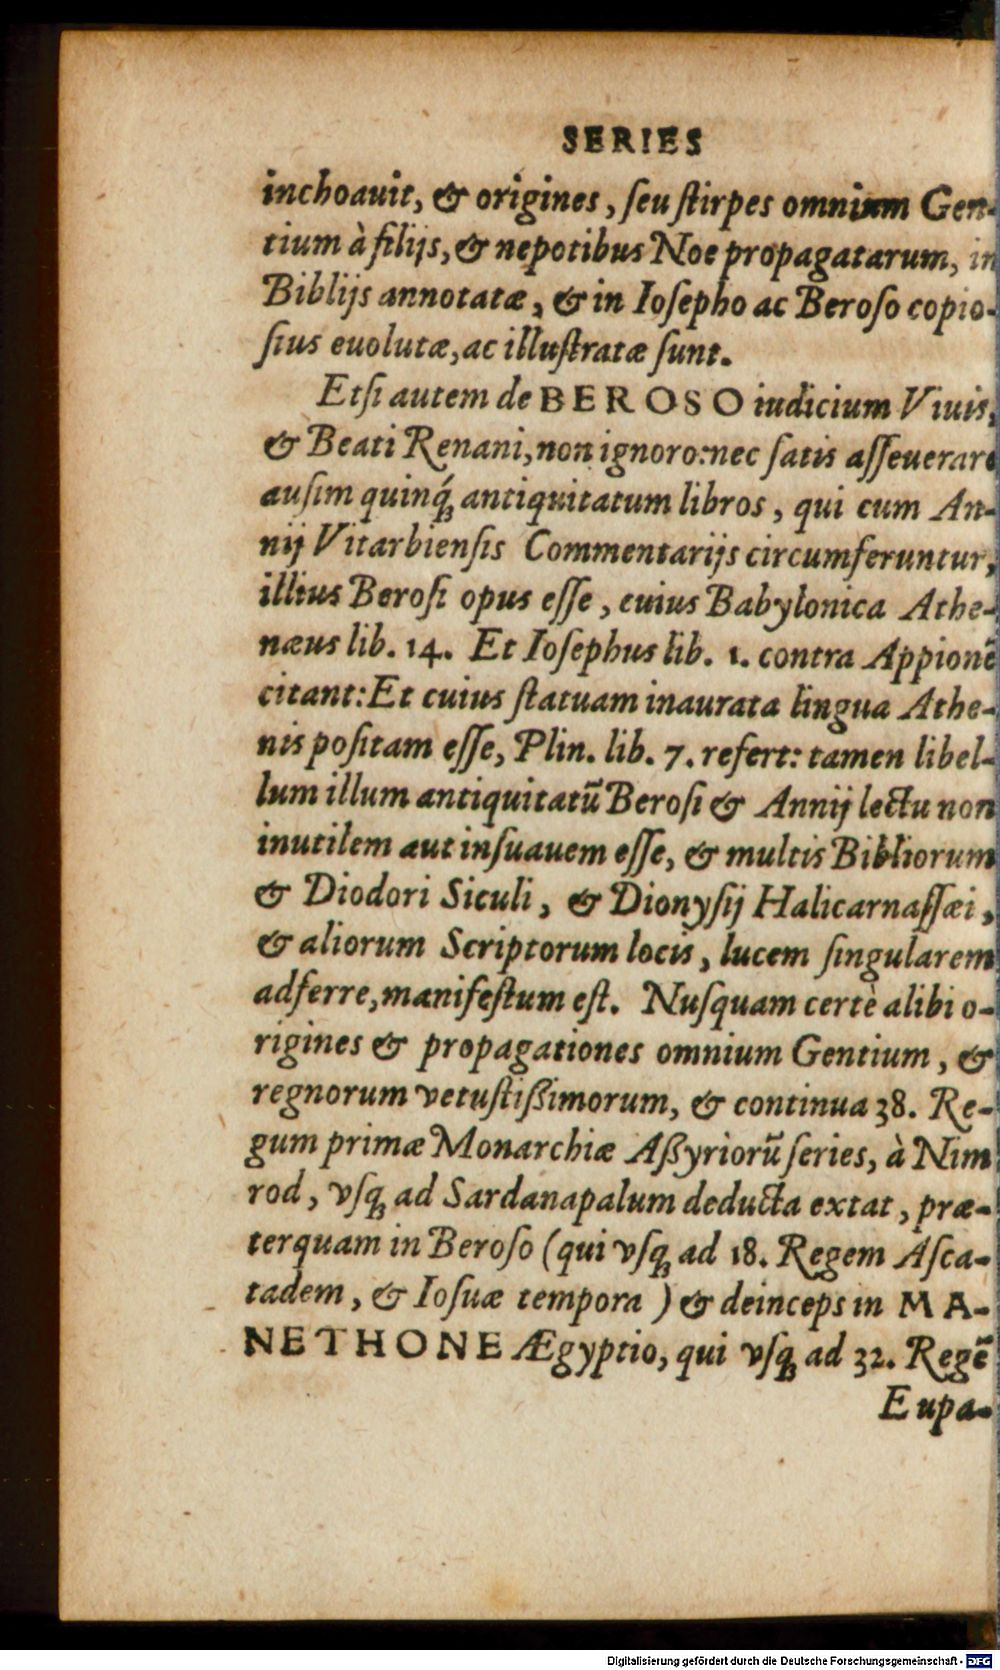 SERIES
inchoauit, & origines, ſeu ſtirpes omnium Gen-
tium à filijs, & nepotibus Noe propagatarum, in
Biblijs annotatæ, & in Ioſepho ac Beroſo copio-
ſius euolutæ, ac illuſtratæ ſunt.
Etſi autem de BEROSO iudicium Viuis,
& Beati Renani, non ignoro: nec ſatis aſſeuerare
auſim quinq́ꝫ antiquitatum libros, qui cum An-
nij Vitarbienſis Commentarijs circumferuntur,
illius Beroſi opus eſſe, cuius Babylonica Athe-
næus lib. 14. Et Ioſephus lib. 1. contra Appionē
citant: Et cuius ſtatuam inaurata lingua Athe-
nis poſitam eſſe, Plin. lib. 7. refert: tamen libel-
lum illum antiquitatū Beroſi & Annij lectu non
inutilem aut inſuauem eſſe, & multis Bibliorum
& Diodori Siculi, & Dionyſij Halicarnaſſæi,
& aliorum Scriptorum locis, lucem ſingularem
adferre, manifeſtum eſt. Nuſquam certè alibi o-
rigines & propagationes omnium Gentium, &
regnorum vetuſtißimorum, & continua 38. Re-
gum primæ Monarchiæ Aßyriorū ſeries, à Nim
rod, vſqꝫ ad Sardanapalum deducta extat, præ-
terquam in Beroſo (qui vſqꝫ ad 18. Regem Aſca-
tadem, & Ioſuæ tempora) & deinceps in MA-
NETHONE Ægyptio, qui vſqꝫ ad 32. Regē
Eupa-
Digitalisierung gefördert durch die Deutsche Forschungsgemeinschaft - DFG